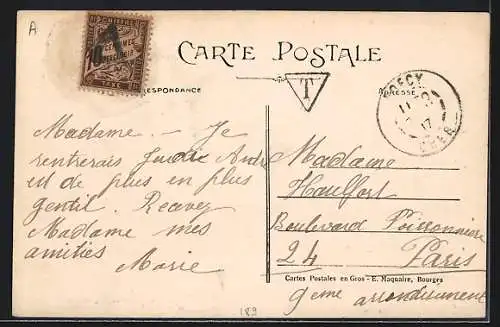 A
CHIFFRE
10
TAXE
CARTE POSTALE
T
RESPONDANCE
ADRESSE
CHER
11
17
Madame – Je
rentrerais Jeudi André
est de plus en plus
gentil. Recevez
Madame mes
amitiés
Marie
Madame
Haulfort
Boulevard Poissonnière
24 Paris
9eme arrondissement
Cartes Postales en Gros - E. Maquaire, Bourges
189